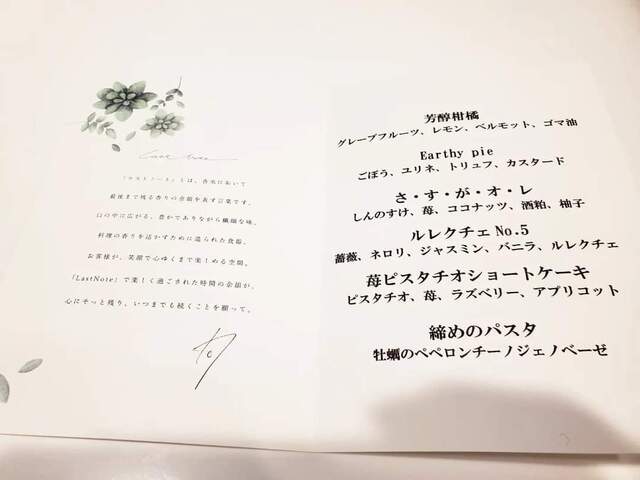 Last Note
「ラストノート」とは、香水において
最後まで残る香りの余韻を表す言葉です。
口の中に広がる、豊かでありながら繊細な味。
料理の香りを活かすために造られた食器。
お客様が、笑顔で心ゆくまで楽しめる空間。
「LastNote」で楽しく過ごされた時間の余韻が、
心にそっと残り、いつまでも続くことを願って。
芳醇柑橘
グレープフルーツ、レモン、ベルモット、ゴマ油
Earthy pie
ごぼう、ユリネ、トリュフ、カスタード
さ・す・が・オ・レ
しんのすけ、苺、ココナッツ、酒粕、柚子
ルレクチェ No.5
薔薇、ネロリ、ジャスミン、バニラ、ルレクチェ
苺ピスタチオショートケーキ
ピスタチオ、苺、ラズベリー、アプリコット
締めのパスタ
牡蠣のペペロンチーノジェノベーゼ